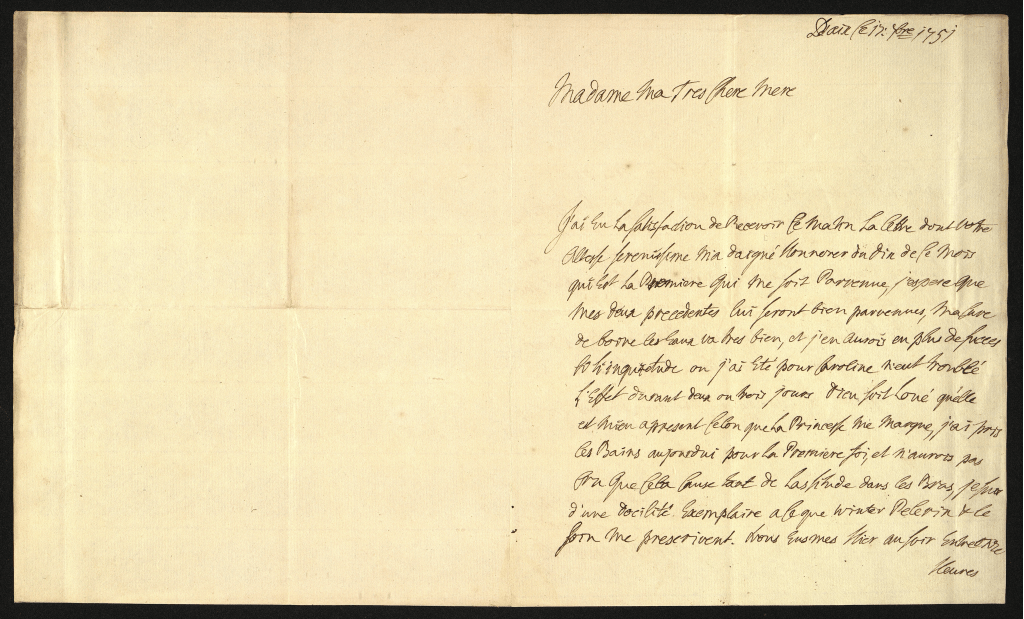 D'aix Ce 17: 7bre 1751
Madame Ma Tres Chere Mere
J'ai Eu La Satisfaction de Recevoir Ce Matin La Lettre dont Votre
Altesse Serenissime M'a daigné Honnorer du Dix de Ce Mois
qui Est La Premiere Qui Me soit Parvenue, j'espere Que
Mes deux precedentes Lui seront bien parvenues, Ma Cure
de boire les Eaux va tres bien, et j'en aurois eu plus de succes
si L'inquietude ou j'ai Eté pour Caroline n'eut troublé
L'Effet durant deux ou trois jours Dieu soit Loué qu'elle
est Mieu apresent Celon que La Princesse Me Marque, j'ai pris
Les Bains aujourdui pour La Premiere foi, et n'aurois pas
Cru Que Cela Cause tant de Lassitude dans Les Bras, je suis
d'une Docilité Exemplaire a Ce que Winter Pelerin & le
Me prescrivent. Nous Eusmes Hier au soir Entre
Heures